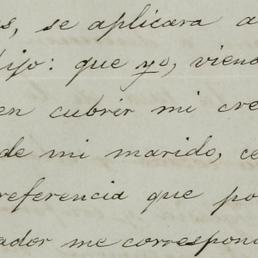 s, se aplicara a
ijo: que yo, viend
en cubrir mi cre
de mi marido, ce
referencia que po
ador me correspon